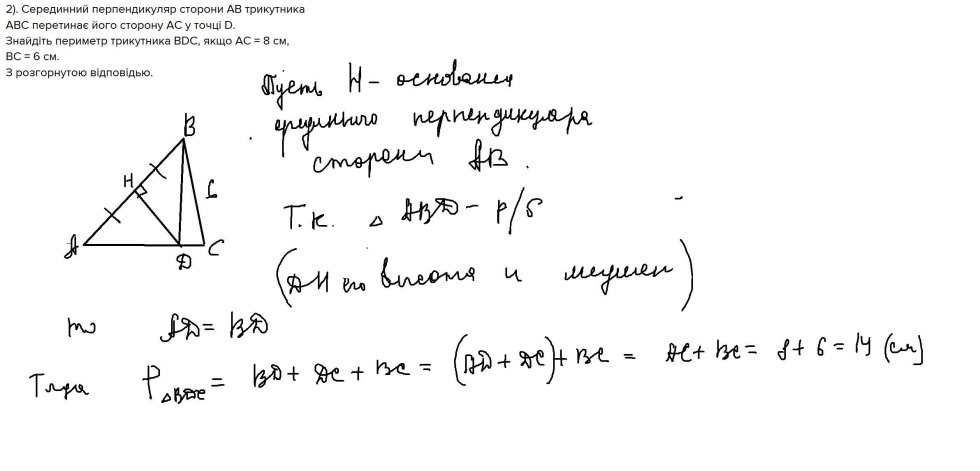 2). Серединний перпендикуляр сторони AB трикутника
ABC перетинає його сторону AC у точці D.
Знайдіть периметр трикутника BDC, якщо AC = 8 см,
BC = 6 см.
З розгорнутою відповідью.
Пусть H - основания
срединного перпендикуляра
стороны AB.
B
H
6
A
D
C
Т.к. △ ABD - р/б
(DH его высота и медиана)
то AD = BD
Тогда P△BDC = BD + DC + BC = (AD + DC) + BC = AC + BC = 8 + 6 = 14 (см)